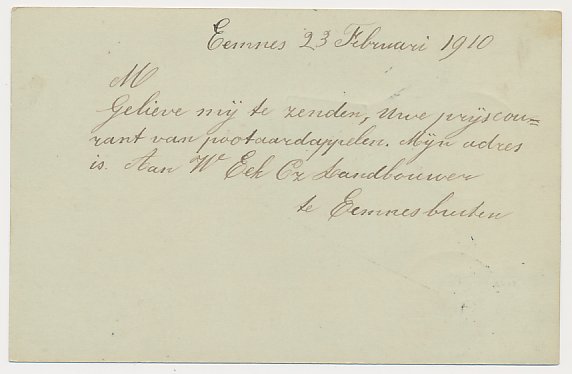 Eemnes 23 Februari 1910
M
Gelieve mij te zenden, Uwe prijscou=
rant van pootaardappelen. Mijn adres
is. Aan W Eek Cz Landbouwer
te Eemnesbuiten